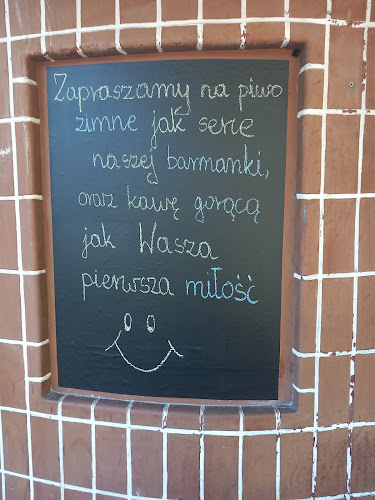 Zapraszamy na piwo
zimne jak serce
naszej barmanki,
oraz kawę gorącą
jak Wasza
pierwsza miłość